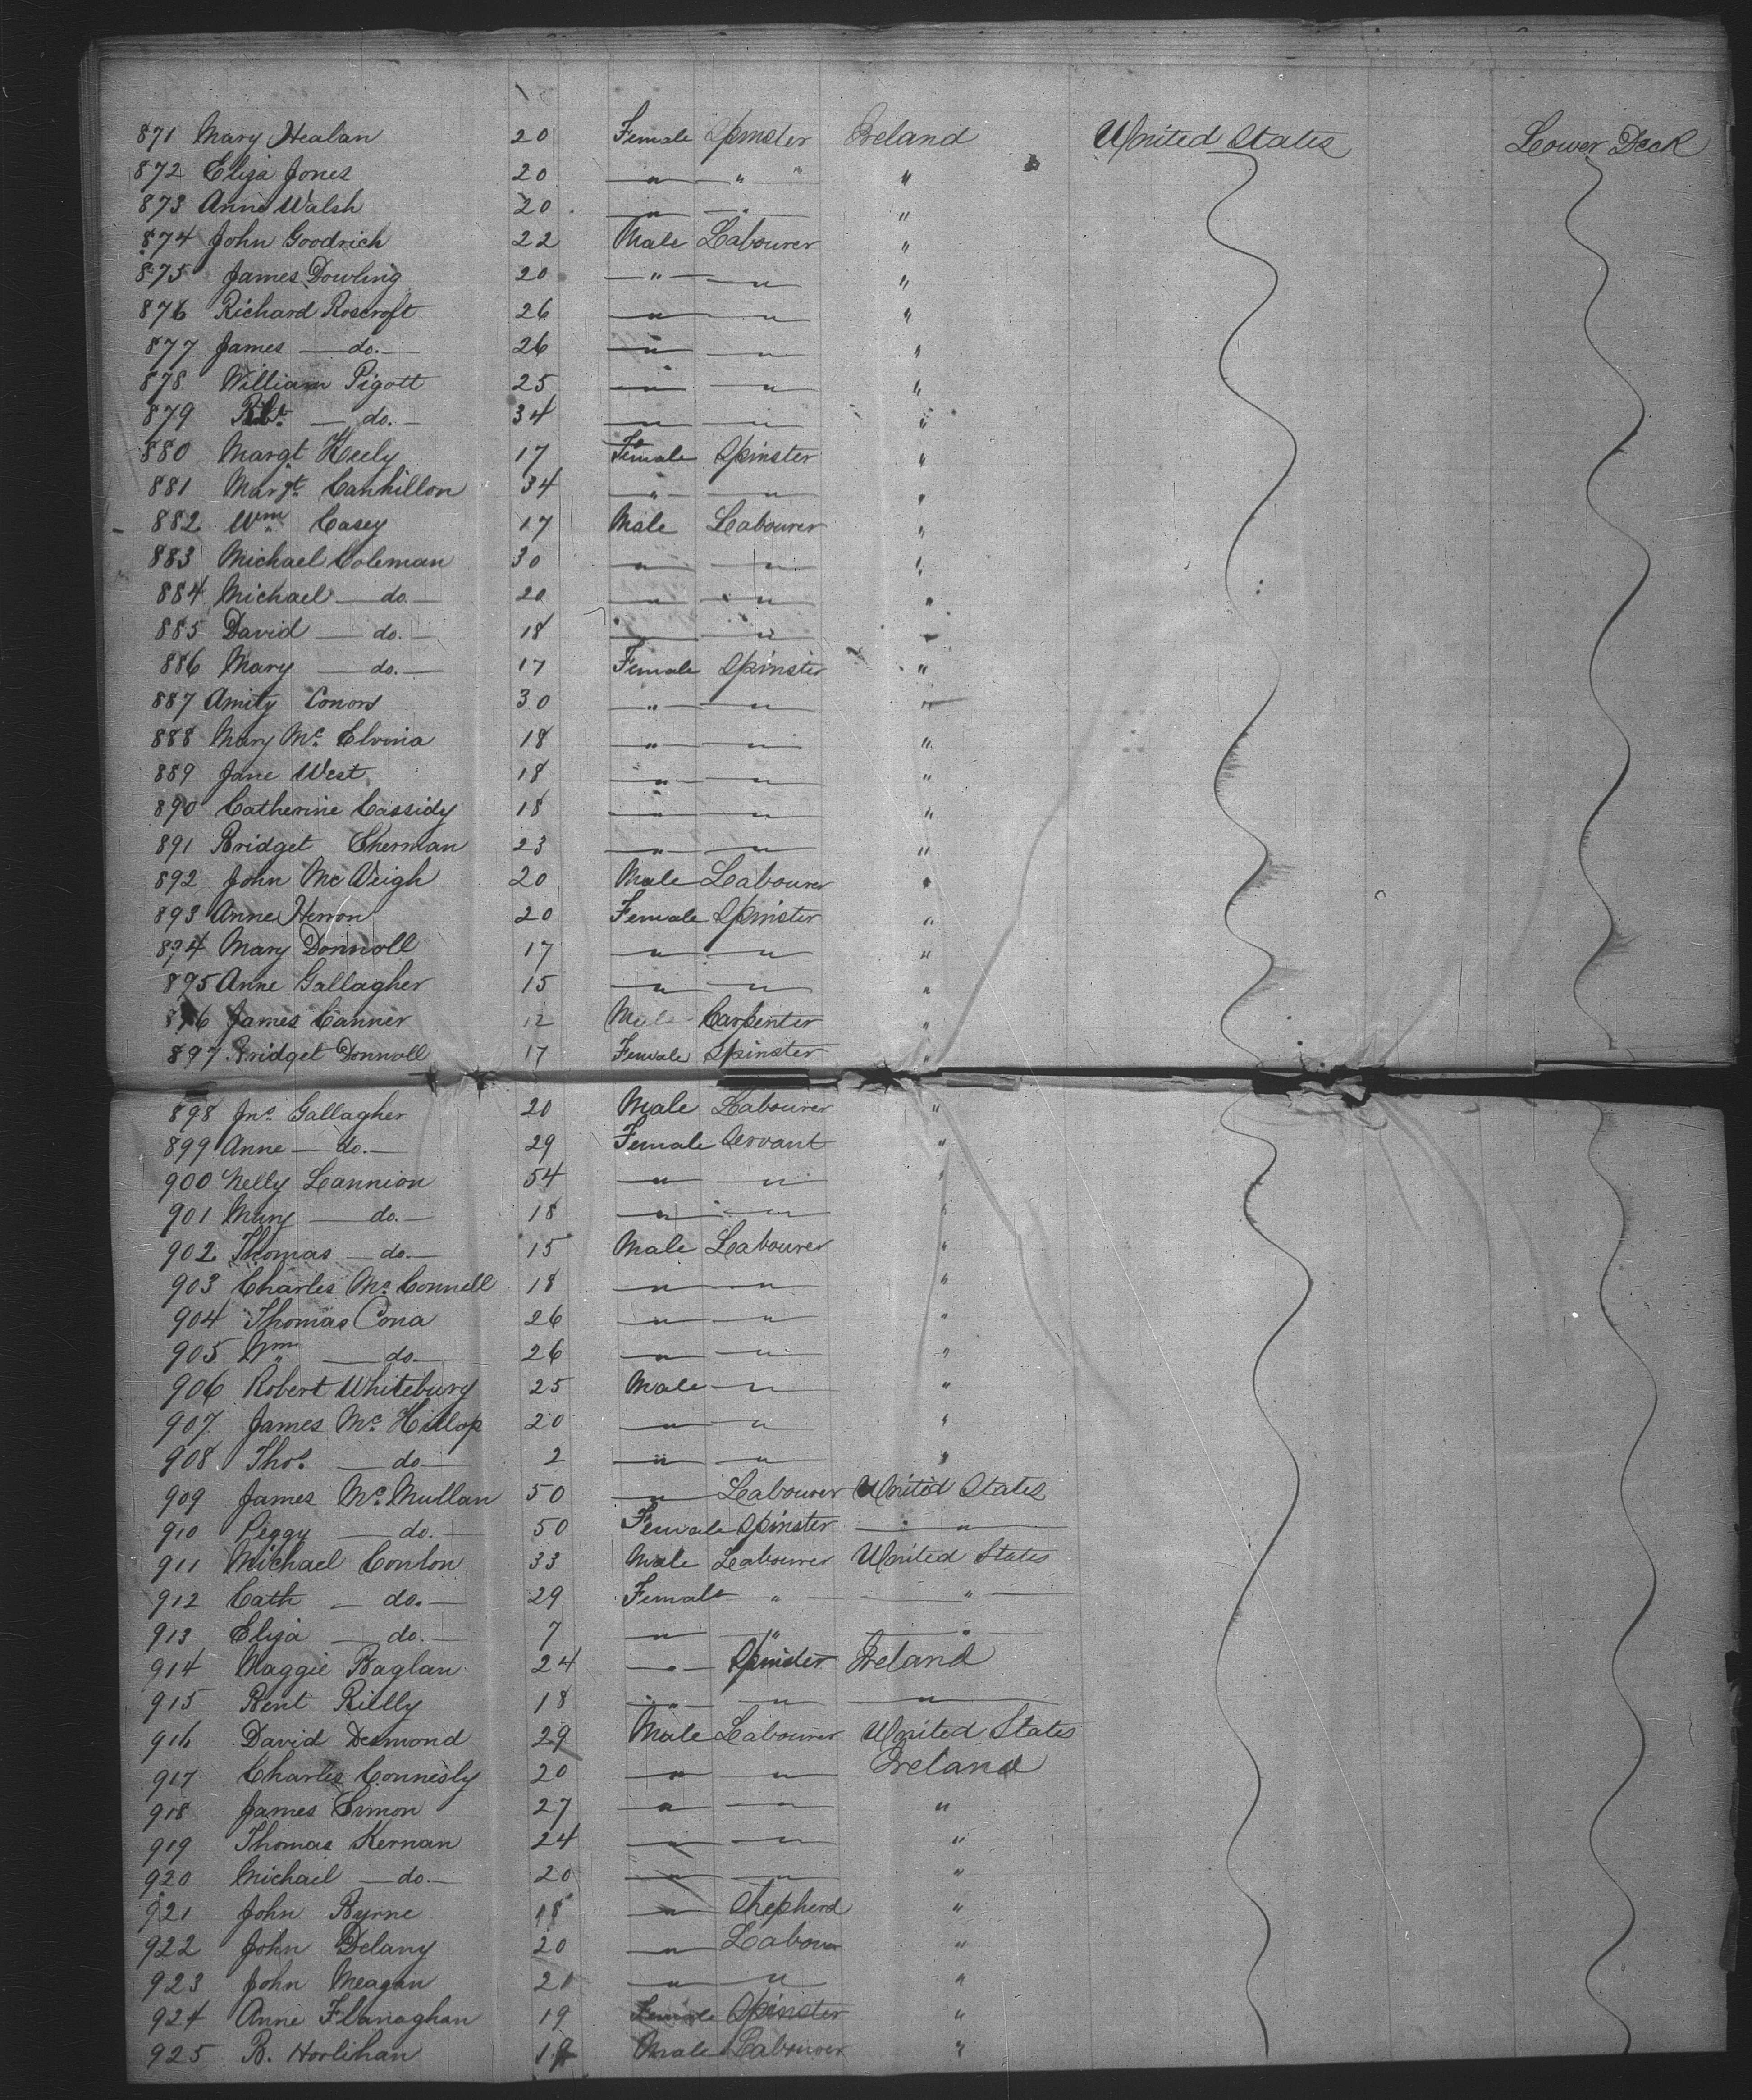 871 Mary Healan 20 Female Spinster Ireland United States Lower Deck
872 Eliza Jones 20 " " " "
873 Anne Walsh 20 " " "
874 John Goodrich 22 Male Labourer "
875 James Dowling 20 " " "
876 Richard Roscroft 26 " " "
877 James do. 26 " " "
878 William Pigott 25 " " "
879 do. 34 " " "
880 Margt Keely 17 Female Spinster "
881 Margt. Canhillon 34 " " "
882 Wm Casey 17 Male Labourer "
883 Michael Coleman 30 " " "
884 Michael do. 20 " " "
885 David do. 18 " " "
886 Mary do. 17 Female Spinster "
887 Amity Conors 30 " " "
888 Mary Mc. Elvina 18 " " "
889 Jane West 18 " " "
890 Catherine Cassidy 18 " " "
891 Bridget Sherman 23 " " "
892 John Mc Veigh 20 Male Labourer "
893 Anne Herron 20 Female Spinster "
894 Mary Donnoll 17 " " "
895 Anne Gallagher 15 " " "
896 James Canner 12 Male Carpenter "
897 Bridget Donnoll 17 Female Spinster "
898 Jno. Gallagher 20 Male Labourer "
899 Anne do. 29 Female Servant "
900 Nelly Lannion 54 " " "
901 Mary do. 18 " " "
902 Thomas do. 15 Male Labourer "
903 Charles Mc. Connell 18 " " "
904 Thomas Cona 26 " " "
905 Wm do. 26 " " "
906 Robert Whitebury 25 Male " "
907. James Mc. Hillop 20 " " "
908 Thos. do 2 " " "
909 James Mc. Mullan 50 " Labourer United States
910 Peggy do. 50 Female Spinster "
911 Michael Conlon 33 Male Labourer United States
912 Cath do. 29 Female " "
913 Eliza do. 7 " " "
914 Maggie Baglan 24 " Spinster Ireland
915 Bent Rielly 18 " " "
916 David Desmond 29 Male Labourer United States
917 Charles Connesly 20 " " Ireland
918 James Simon 27 " " "
919 Thomas Kernan 24 " " "
920 Michael do. 20 " " "
921 John Byrne 18 " Shepherd "
922 John Delany 20 " Labour "
923 John Meagan 21 " " "
924 Anne Flanaghan 19 Female Spinster "
925 B. Horlihan Male Labourer "